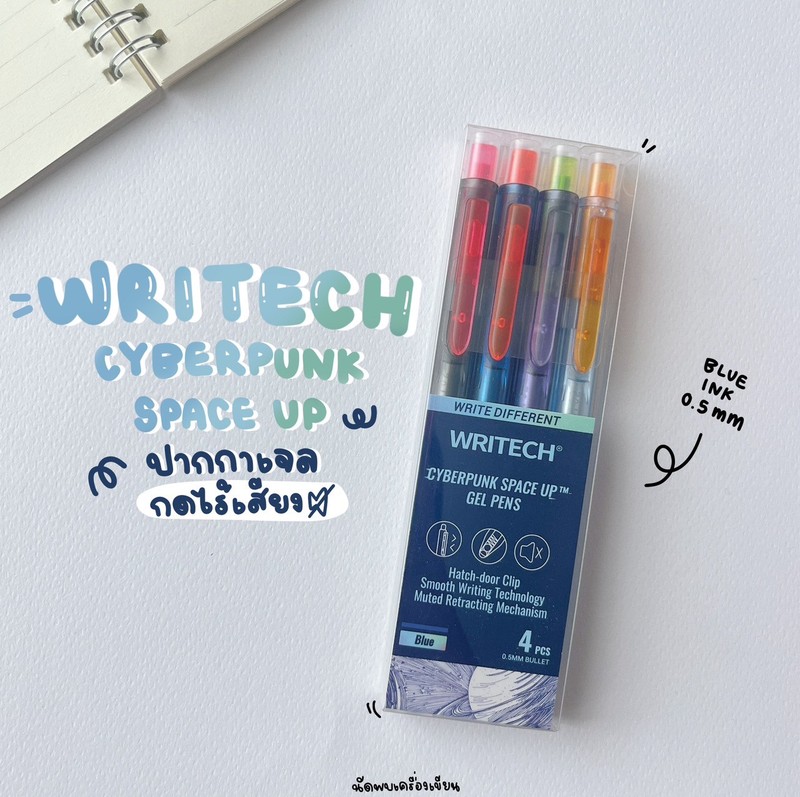 WRITECH
CYBERPUNK
SPACE UP
ปากกาเจล
กดไร้เสียง
BLUE
INK
0.5 mm
WRITE DIFFERENT
WRITECH®
CYBERPUNK SPACE UP™
GEL PENS
Hatch-door Clip
Smooth Writing Technology
Muted Retracting Mechanism
Blue
4 PCS
0.5MM BULLET
นัดพบเครื่องเขียน